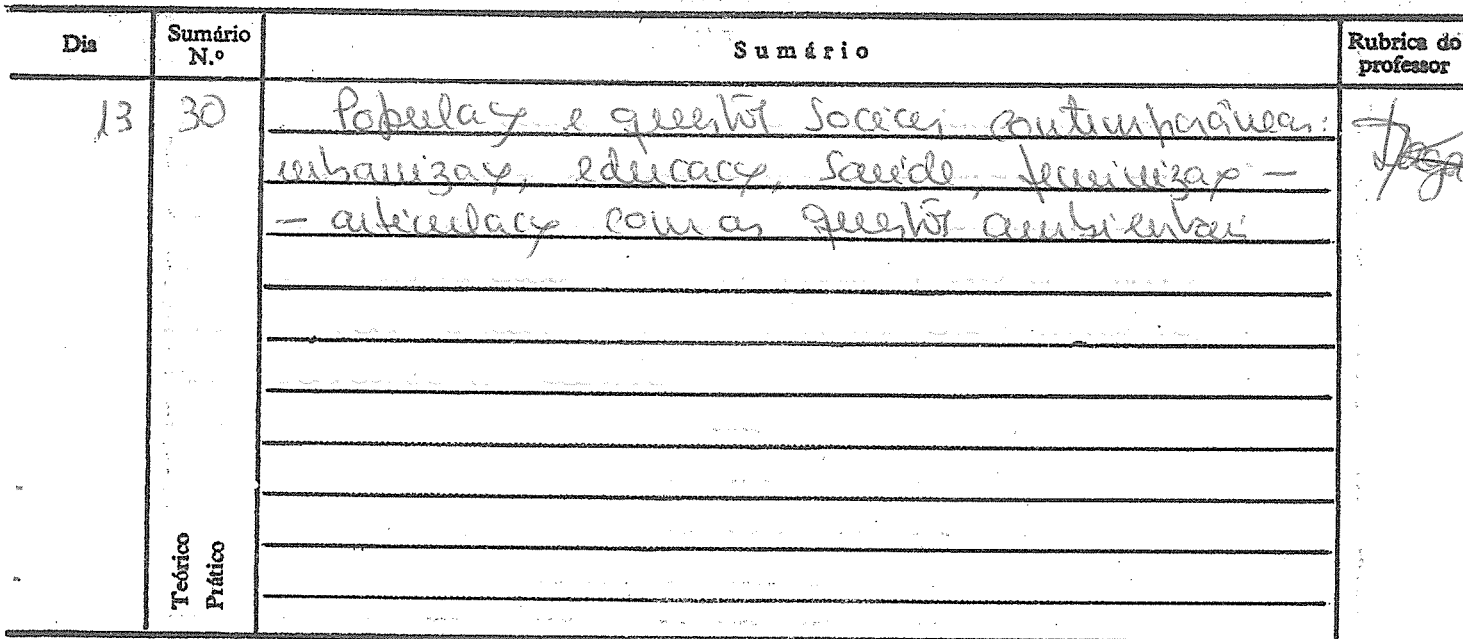 Dia Sumário N.º Sumário Rubrica do professor
13 30 População e questões sociais contemporâneas:
urbanização, educação, saúde, feminização –
– articulação com as questões ambientais
Teórico
Prático